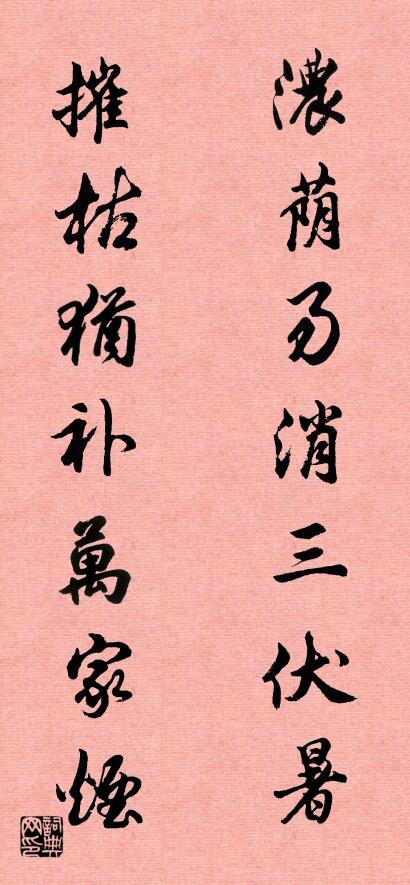 濃荫易消三伏暑
摧枯猶补萬家煙
詞典
网印